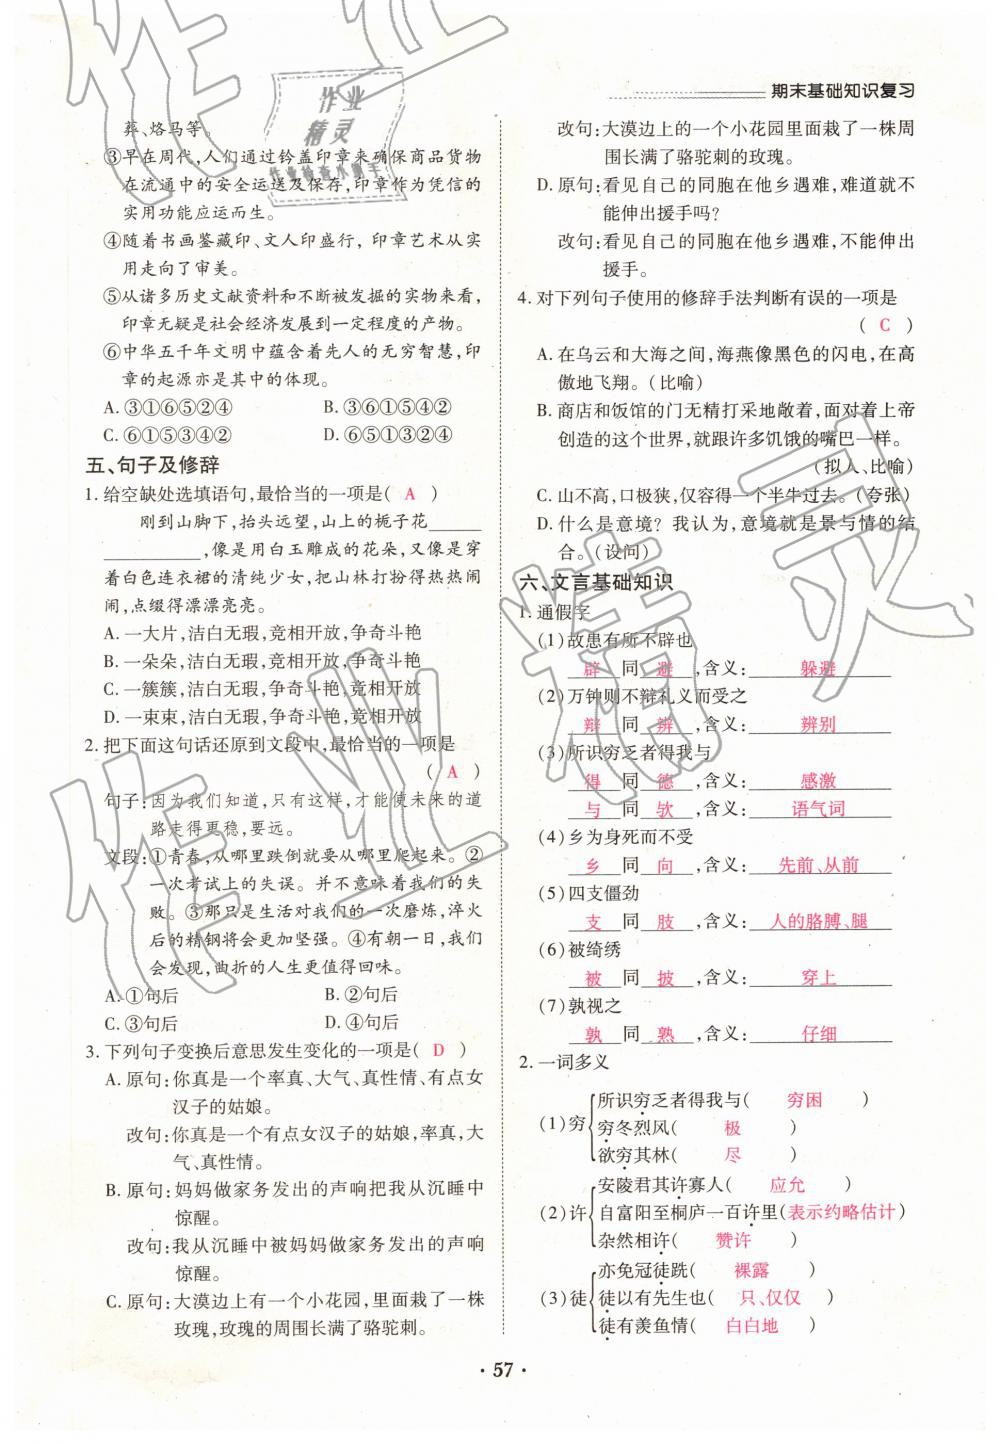 期末基础知识复习
葬、烙马等。
③早在周代,人们通过钤盖印章来确保商品货物
在流通中的安全运送及保存,印章作为凭信的
实用功能应运而生。
④随着书画鉴藏印、文人印盛行,印章艺术从实
用走向了审美。
⑤从诸多历史文献资料和不断被发掘的实物来看,
印章无疑是社会经济发展到一定程度的产物。
⑥中华五千年文明中蕴含着先人的无穷智慧,印
章的起源亦是其中的体现。
A. ③①⑥⑤②④ B. ③⑥①⑤④②
C. ⑥①⑤③②④ D. ⑥⑤①③④②
五、句子及修辞
1. 给空缺处选填语句,最恰当的一项是( A )
刚到山脚下,抬头远望,山上的栀子花______
____________,像是用白玉雕成的花朵,又像是穿
着白色连衣裙的清纯少女,把山林打扮得热热闹
闹,点缀得漂漂亮亮。
A. 一大片,洁白无瑕,竞相开放,争奇斗艳
B. 一朵朵,洁白无瑕,竞相开放,争奇斗艳
C. 一簇簇,洁白无瑕,争奇斗艳,竞相开放
D. 一束束,洁白无瑕,争奇斗艳,竞相开放
2. 把下面这句话还原到文段中,最恰当的一项是
( A )
句子:因为我们知道,只有这样,才能使未来的道
路走得更稳,更远。
文段:①青春,从哪里跌倒就要从哪里爬起来。②
一次考试上的失误。并不意味着我们的失
败。③那只是生活对我们的一次磨炼,淬火
后的精钢将会更加坚强。④有朝一日,我们
会发现,曲折的人生更值得回味。
A. ①句后 B. ②句后
C. ③句后 D. ④句后
3. 下列句子变换后意思发生变化的一项是( D )
A. 原句:你真是一个率真、大气、真性情、有点女
汉子的姑娘。
改句:你真是一个有点女汉子的姑娘,率真,大
气、真性情。
B. 原句:妈妈做家务发出的声响把我从沉睡中
惊醒。
改句:我从沉睡中被妈妈做家务发出的声响
惊醒。
C. 原句:大漠边上有一个小花园,里面栽了一株
玫瑰,玫瑰的周围长满了骆驼刺。
改句:大漠边上的一个小花园里面栽了一株周
围长满了骆驼刺的玫瑰。
D. 原句:看见自己的同胞在他乡遇难,难道就不
能伸出援手吗?
改句:看见自己的同胞在他乡遇难,不能伸出
援手。
4. 对下列句子使用的修辞手法判断有误的一项是
( C )
A. 在乌云和大海之间,海燕像黑色的闪电,在高
傲地飞翔。(比喻)
B. 商店和饭馆的门无精打采地敞着,面对着上帝
创造的这个世界,就跟许多饥饿的嘴巴一样。
(拟人、比喻)
C. 山不高,口极狭,仅容得一个半牛过去。(夸张)
D. 什么是意境? 我认为,意境就是景与情的结
合。(设问)
六、文言基础知识
1. 通假字
(1)故患有所不辟也
辟 同 避 ,含义: 躲避
(2)万钟则不辩礼义而受之
辩 同 辨 ,含义: 辨别
(3)所识穷乏者得我与
得 同 德 ,含义: 感激
与 同 欤 ,含义: 语气词
(4)乡为身死而不受
乡 同 向 ,含义: 先前、从前
(5)四支僵劲
支 同 肢 ,含义: 人的胳膊、腿
(6)被绮绣
被 同 披 ,含义: 穿上
(7)孰视之
孰 同 熟 ,含义: 仔细
2. 一词多义
所识穷乏者得我与( 穷困 )
(1)穷 穷冬烈风( 极 )
欲穷其林( 尽 )
安陵君其许寡人( 应允 )
(2)许 自富阳至桐庐一百许里(表示约略估计)
杂然相许( 赞许 )
亦免冠徒跣( 裸露 )
(3)徒 徒以有先生也( 只、仅仅 )
徒有羡鱼情( 白白地 )
· 57 ·
作业
精灵
作业检查小帮手
作业精灵
作业精灵